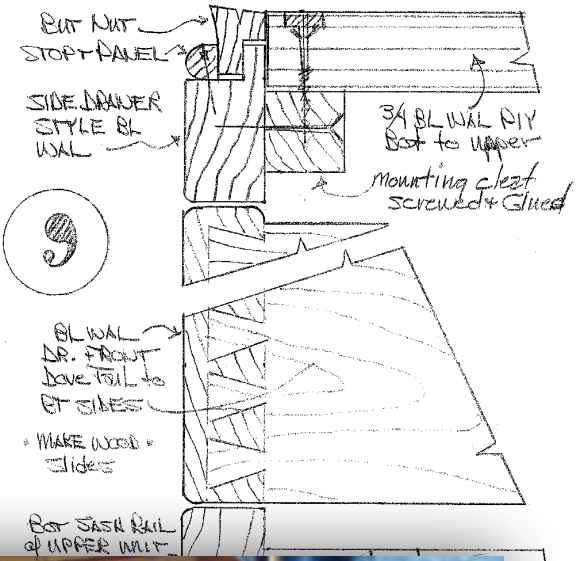 BUT NUT
STOP + PANEL
SIDE DRAWER
STYLE BL
WAL
3/4 BL WAL PLY
Bot to upper
mounting cleat
screwed + Glued
9
BL WAL
DR. FRONT
Dove Tail to
BT SIDES
• MAKE WOOD •
Slides
BOT SASH RAIL
of UPPER UNIT